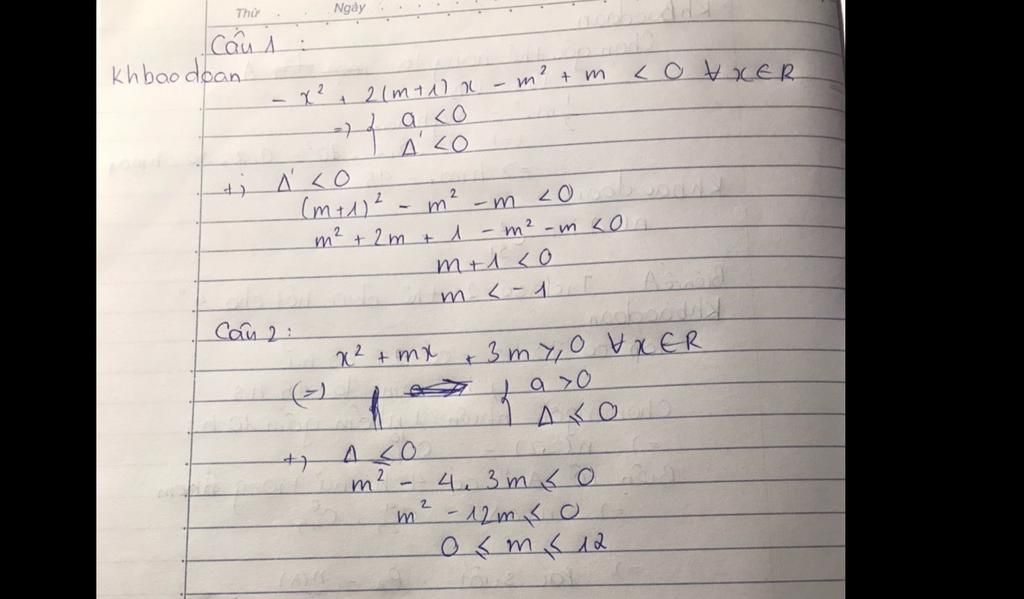 Thứ Ngày
Câu 1 :
khbaodoan
- x² + 2(m+1)x - m² + m < 0 ∀ x ∈ R
=> { a < 0
Δ' < 0
+) Δ' < 0
(m+1)² - m² - m < 0
m² + 2m + 1 - m² - m < 0
m + 1 < 0
m < -1
Câu 2 :
x² + mx + 3m ≥ 0 ∀ x ∈ R
(=) { a > 0
Δ ≤ 0
+) Δ ≤ 0
m² - 4.3m ≤ 0
m² - 12m ≤ 0
0 ≤ m ≤ 12